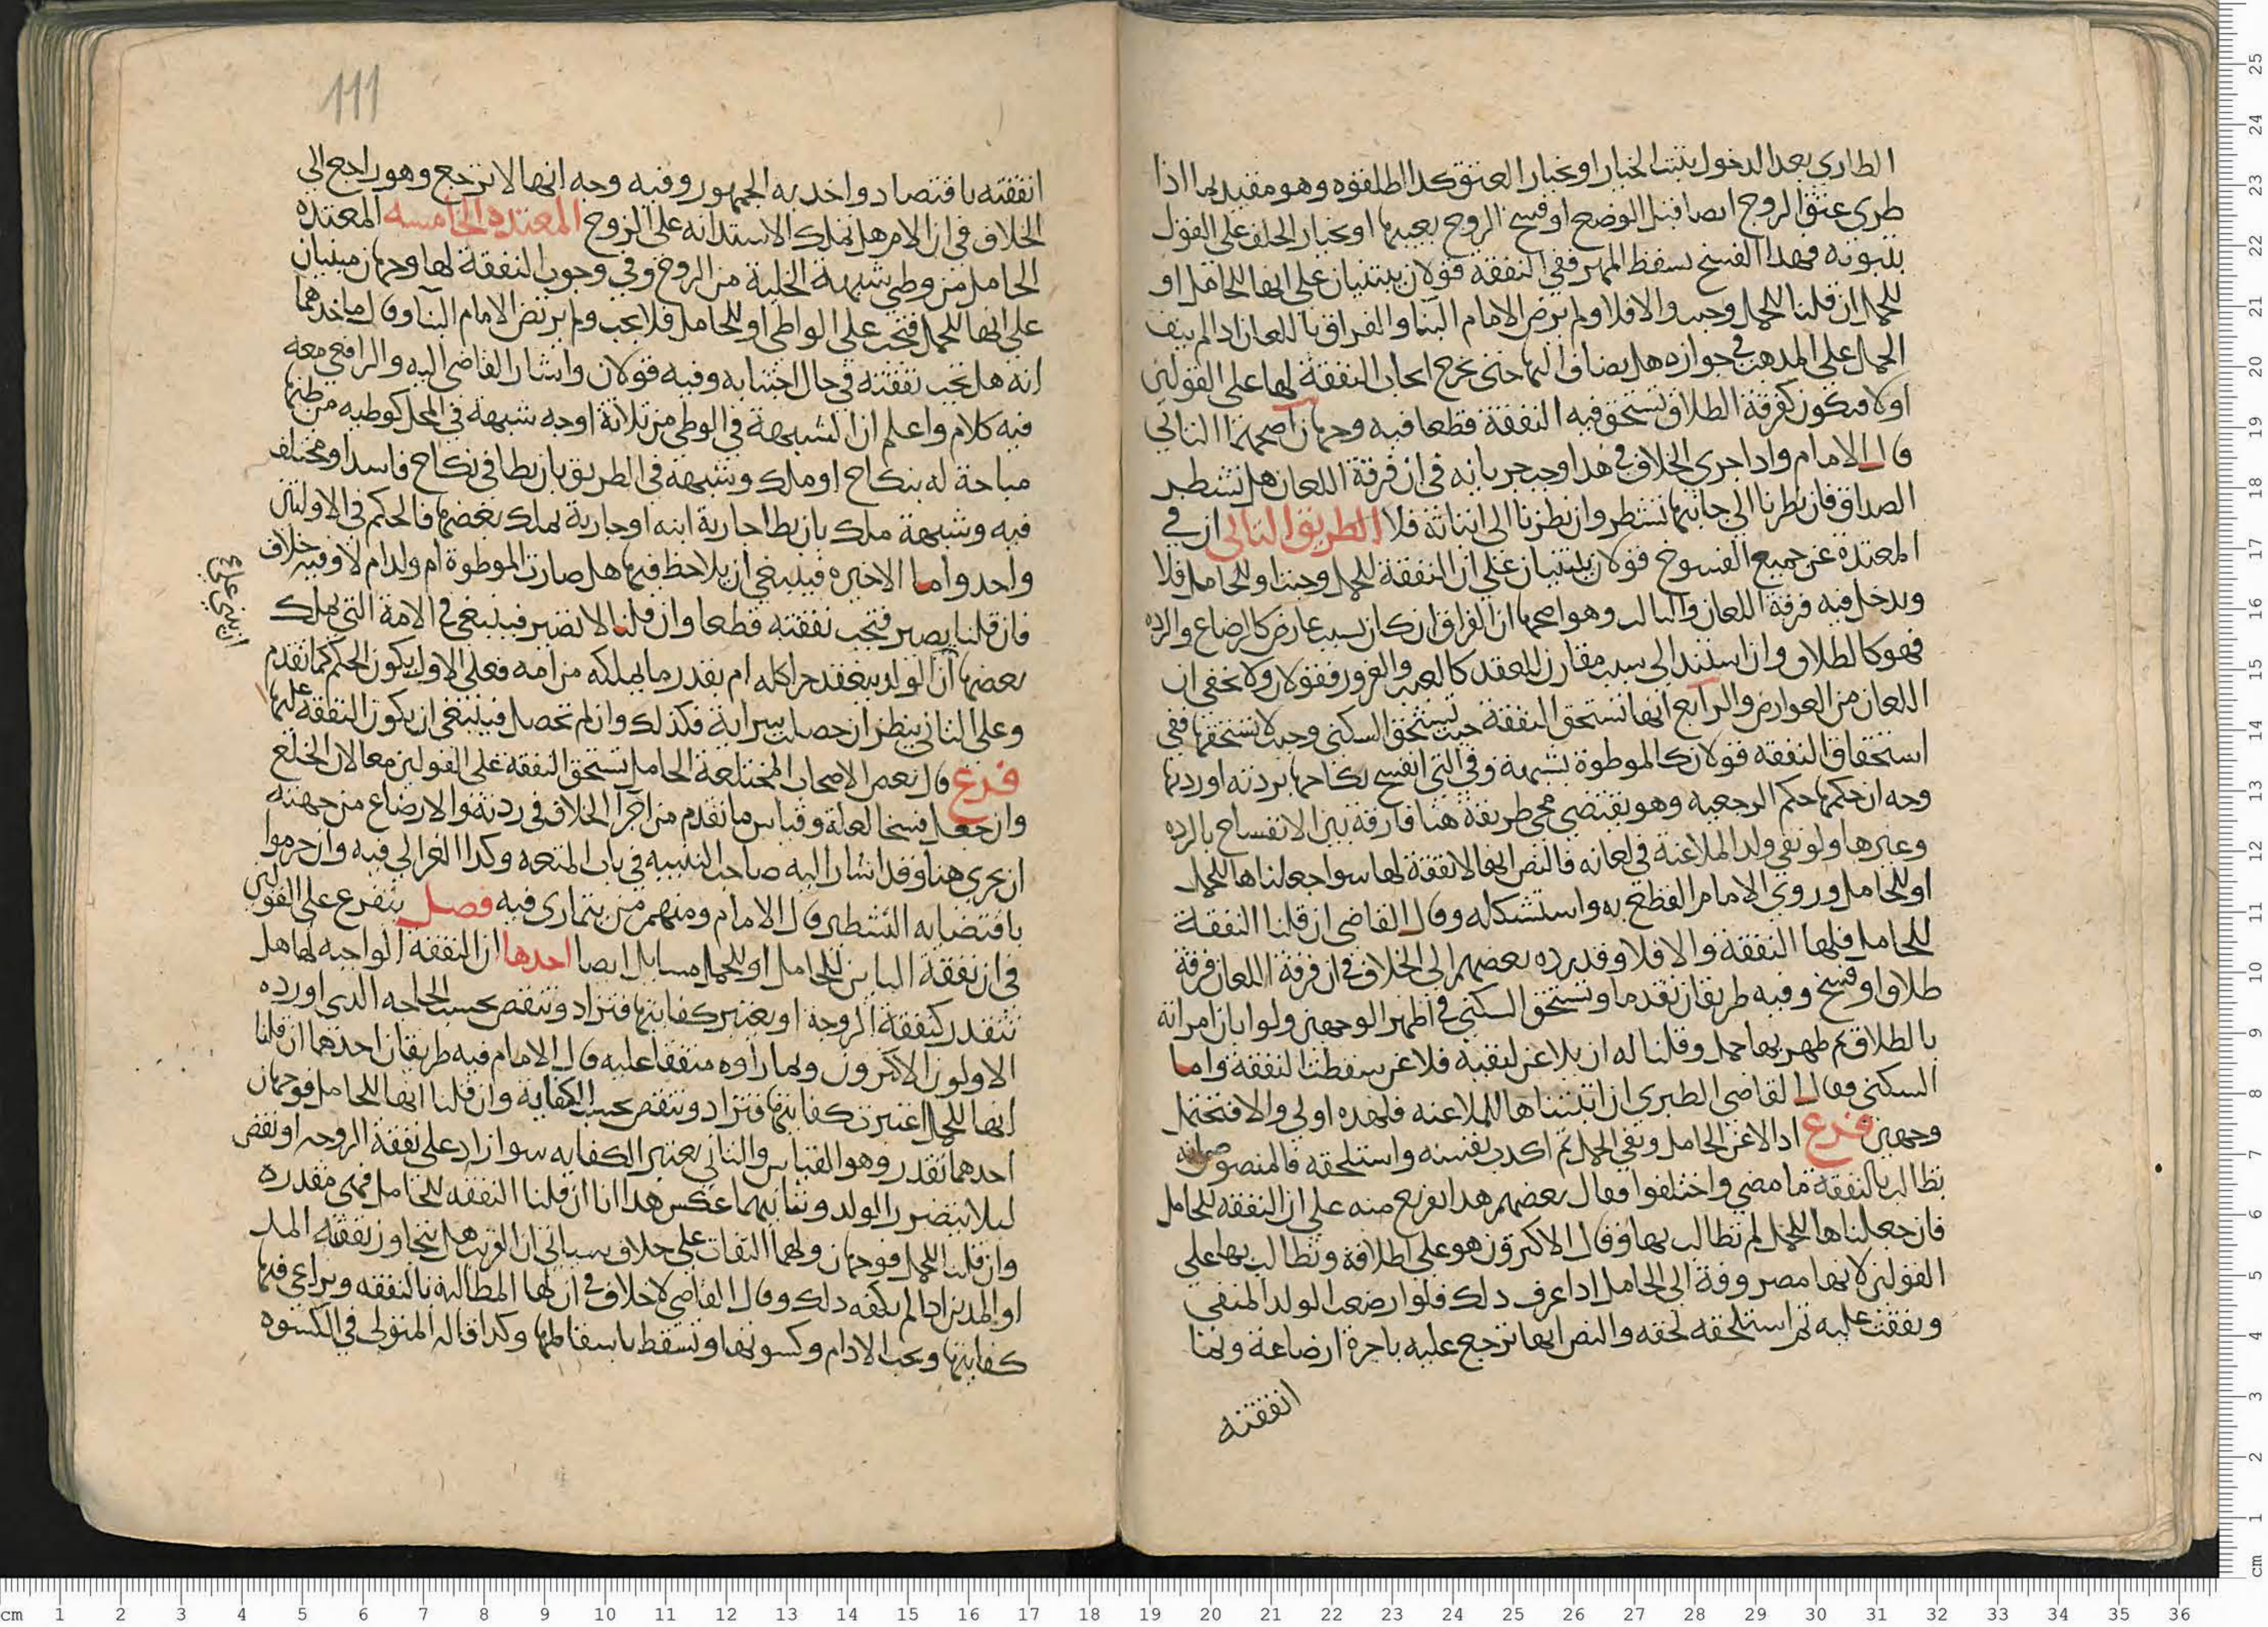 الطاري بعد الدخول يثبت الخيار او بخيار العتق كذا اطلقوه وهو مقيد بما اذا
طرى عتق الزوج ايضا قبل الوضع او فسخ الزوج بعيبها او بخيار الخلف على القول
بثبوته فهذا الفسخ يسقط المهر ففي النفقة قولان يبتنيان على انها للحامل او
للحمل ان قلنا للحمل وجبت والا فلا ولم يرض الامام البنا والفراق باللعان اذا لم ينف
الحمل على المذهب في جوازه هل يضاف اليها حتى يخرج ايجاب النفقة لها على القولين
او لا فيكون كفرقة الطلاق تستحق فيه النفقة قطعا فيه وجهان اصحهما الثاني
قال الامام واذا جرى الخلاف في هذا وجب جريانه في ان فرقة اللعان هل تشطر
الصداق فان نظرنا الى جانبها تشطر وان نظرنا الى اتيانه فلا الطريق الثاني ان في
المعتدة عن جميع الفسوخ قولان يبتنيان على ان النفقة للحمل وجبت او للحامل فلا
ويدخل فيه فرقة اللعان والثالث وهو اصحها ان الفراق ان كان بسبب عارض كالرضاع والرده
فهو كالطلاق وان استند الى سبب مقارن للعقد كالعيب والغرور فقولان ولا يخفى ان
اللعان من العوارض والرابع انها تستحق النفقة حيث تستحق السكنى وحيث لا تستحقها ففي
استحقاق النفقه قولان كالموطوة بشبهة وفي التي انفسخ نكاحها بردته او ردتها
وجه ان حكمها حكم الرجعية وهو يقتضي مجي طريقة هنا فارقة بين الانفساخ بالرده
وغيرها ولو نفي ولد الملاعنة في لعانه فالنص انها لا نفقة لها سوا جعلناها للحمل
او للحامل وروى الامام القطع به واستشكله وقال القاضي ان قلنا النفقة
للحامل فلها النفقة والا فلا وقد رده بعضهم الى الخلاف في ان فرقة اللعان فرقة
طلاق او فسخ وفيه طريقان تقدما وتستحق السكنى في اظهر الوجهين ولو ابان امراته
بالطلاق ثم ظهر بها حمل وقلنا له ان يلاعن لنفيه فلاعن سقطت النفقة واما
السكنى فقال القاضي الطبري ان اثبتناها للملاعنه فلهذه اولى والا فتحتمل
وجهين فرع اذا لاعن الحامل ونفي الحمل ثم اكذب نفسه واستلحقه فالمنصوص انه
تطالب بالنفقة ما مضى واختلفوا فقال بعضهم هذا تفريع منه على ان النفقه للحامل
فان جعلناها للحمل لم تطالب بها وقال الاكثرون هو على اطلاقه وتطالب بها على
القولين لانها مصروفة الى الحامل اذا عرف ذلك فلو ارضعت الولد المنفي
ونفقت عليه ثم استلحقه لحقه والنص انها ترجع عليه باجرة ارضاعه وبما
انفقته
111
انفقته باقتصاد واخذ به الجمهور وفيه وجه انها لا ترجع وهو راجع الى
الخلاف في ان الام هل تملك الاستدانه على الزوج المعتده الخامسه المعتده
الحامل من وطى شبهة الخلية من الزوج وفي وجوب النفقة لها وجهان مبنيان
على انها للحمل فتجب على الواطى او للحامل فلا تجب ولم يرتض الامام البنا وقال ماخذهما
انه هل تجب نفقته في حال اجتنابه وفيه قولان واشار القاضي اليه والرافعي معه
فيه كلام واعلم ان الشبهة في الوطى من ثلاثة اوجه شبهة في المحل كوطيه من ظنها
مباحة له بنكاح او ملك وشبهة في الطريق بان يطا في نكاح فاسد او مختلف
فيه وشبهة ملك بان يطا جارية ابنه او جارية يملك بعضها فالحكم في الاوليين
واحد واما الاخيره فينبغي ان يلاحظ فيها هل صارت الموطوة ام ولد ام لا وفيه خلاف
فان قلنا يصير فتجب نفقته قطعا وان قلنا لا تصير فينبغي في الامة التي يملك
بعضها ان الولد ينعقد حرا كله ام بقدر ما يملكه من امه فعلى الاول يكون الحكم كما تقدم
وعلى الثاني ينظر ان حصلت سراية فكذلك وان لم تحصل فينبغي ان يكون النفقه عليها
فرع قال بعض الاصحاب المختلعة الحامل تستحق النفقة على القولين معا لان الخلع
وان جعل فسخا لعلة وقياس ما تقدم من اجرا الخلاف في ردته والارضاع من جهته
ان يجري هنا وقد اشار اليه صاحب التنبيه في باب المتعه وكذا الغزالي فيه وان جزموا
باقتضايه التشطير قال الامام ومنهم من يتمارى فيه فصل يتفرع على القولين
في ان نفقة الباين للحامل او للحمل مسايل ايضا احدها ان النفقة الواجبه لها هل
تتقدر كنفقة الزوجة او يعتبر كفايتها فتزاد وتنقص بحسب الحاجه الذي اورده
الاولون الاكثرون وبما راوه متفقا عليه قال الامام فيه طريقان احدهما ان قلنا
انها للحمل اعتبرت كفايتها فتزاد وتنقص بحسب الكفاية وان قلنا انها للحامل فوجهان
احدهما تقدر وهو القياس والثاني يعتبر الكفايه سوا زاد على نفقة الزوجه او نقص
ليلا يتضرر الولد وثانيهما عكس هذا انا ان قلنا النفقه للحامل فهى مقدره
وان قلنا للحمل فوجهان ولهما التفات على خلاف سياتي ان القريب هل يتجاوز نفقته المد
او المدين اذا لم يكفه ذلك وقال القاضي لا خلاف في ان لها المطالبة بالنفقه ويراعى فيها
كفايتها ويجب الادام وكسوتها وتسقط باسقاطها وكذا قاله المتولي في الكسوه